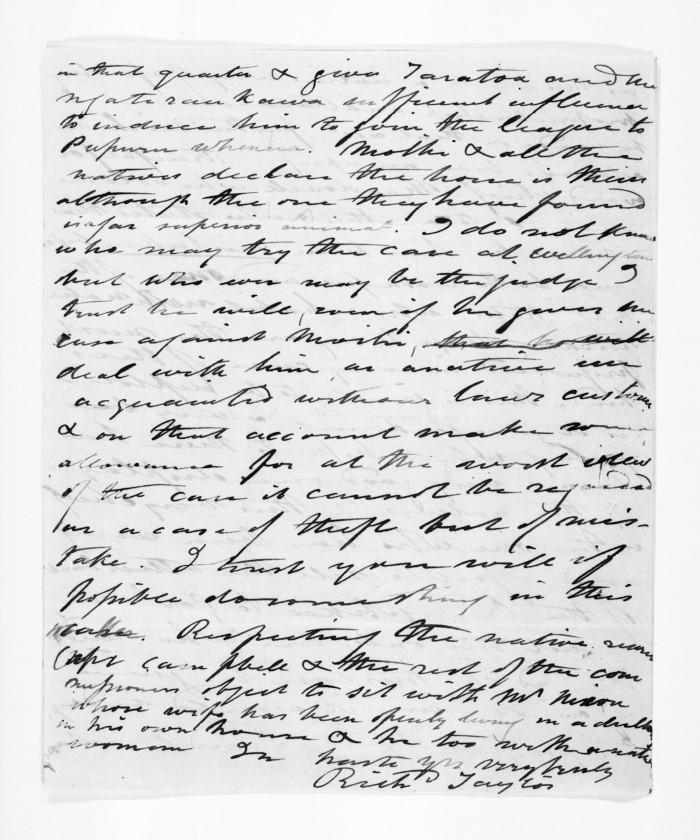 in that quarter & give Taratoa and the
ngati rau kawa sufficent influence
to induce him to join the league to
Pupuru whenua. Moihi & all the
natives declare the horse is theirs
although the one they have found
is a far superior animal. I do not know
who may try the case at Wellington
but who ever may be the judge I
trust he will, even if he gives the
case against Moihi, that he will
deal with him as a native un
acquainted with our laws customs
& on that account make some
allowance for at the worst view
of the case it cannot be regarded
as a case of theft but of mis-
take. I trust you will if
possible do something in this
matter. Respecting the native
Capt Campbell & the rest of the com
missioners object to sit with Mr Nixon
whose wife has been openly living in adultery
in his own house & he too with a native
woman In haste yrs very truly
Richd Taylor